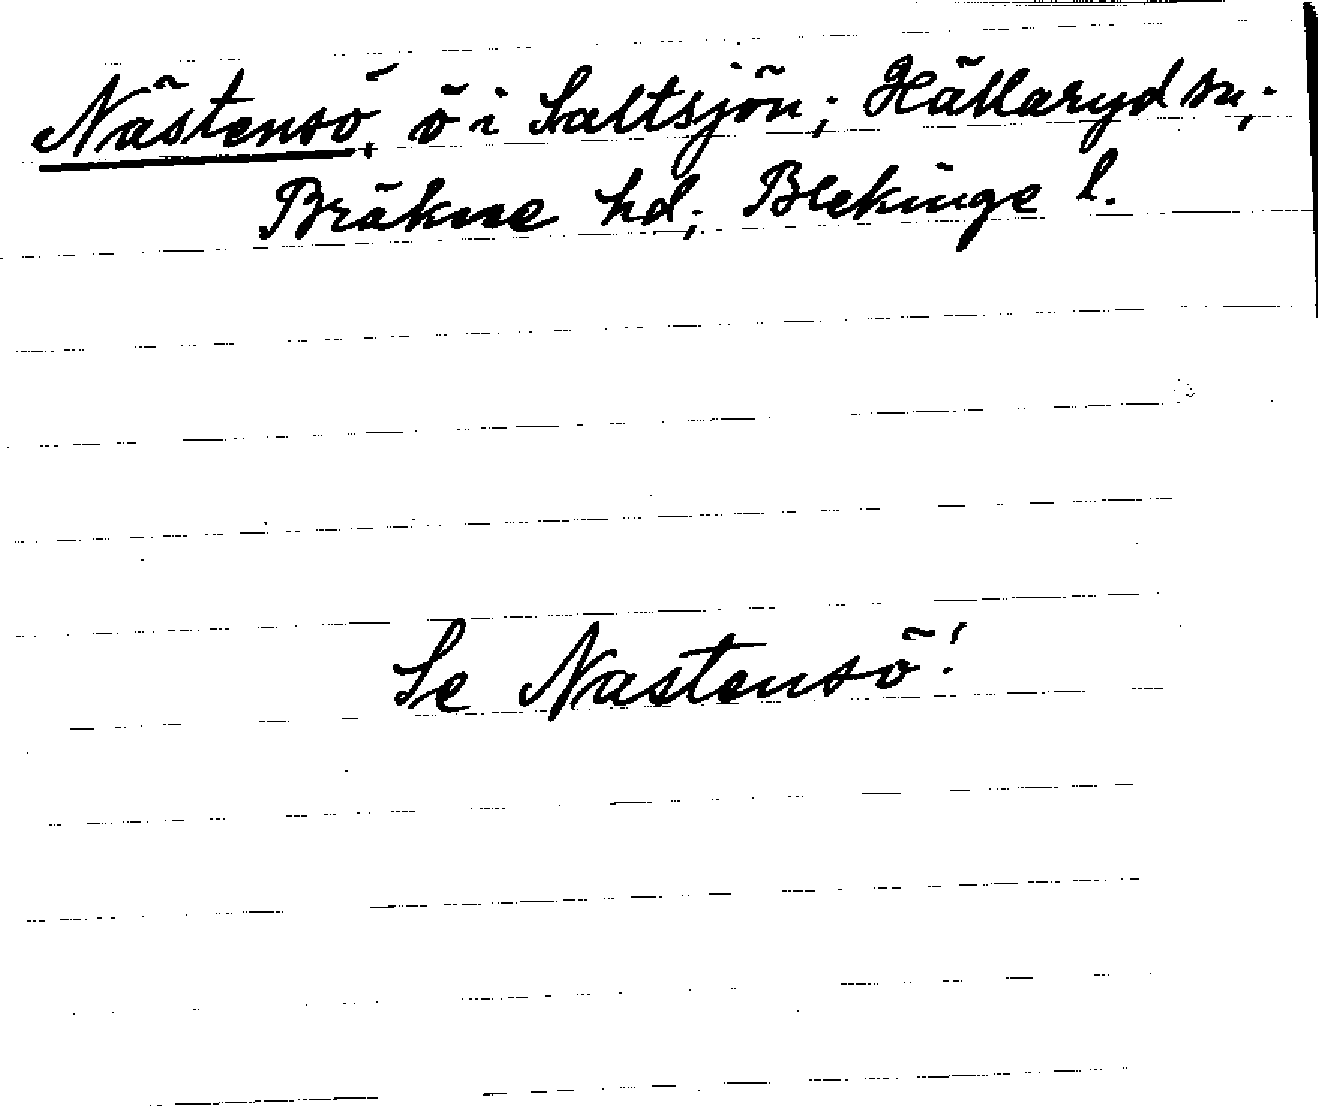 Nästensö, ö i Saltsjön; Hällaryd sn;
Bräkne hd; Blekinge l.
Se Nastensö!